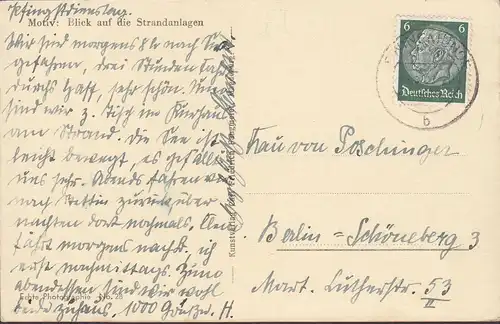 Pfingstdienstag.
Motiv: Blick auf die Strandanlagen
Wir sind morgens 8 h nach
gefahren, drei Stunden Fahrt
durchs Haff, sehr schön. Nun
sind wir z. Tisch im Kurhaus
am Strand. Die See ist
leicht bewegt, es gefällt
uns sehr. Abends fahren wir
nach Stettin zurück über
nachten dort nochmals.
fährt morgens nachh. ich
erst nachmittags. Zum
abendessen sind wir wohl
beide zuhaus. 1000 Grüße H.
Echte Photographie No.
6
Deutsches Reich
b
Frau von Poschinger
Berlin-Schöneberg 3
Mart. Lutherstr. 53
II